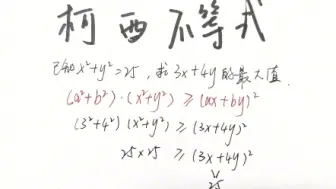 柯西不等式
已知x²+y²=25,求3x+4y的最大值.
(a²+b²)·(x²+y²)≥(ax+by)²
(3²+4²)(x²+y²)≥(3x+4y)²
25×25≥(3x+4y)²
25